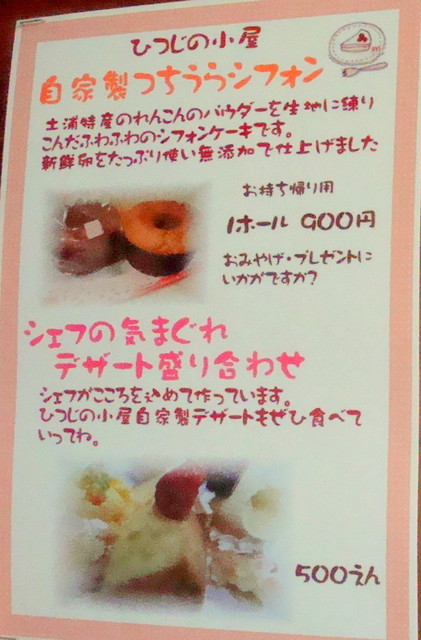 ひつじの小屋
自家製つちうらシフォン
土浦特産のれんこんのパウダーを生地に練り
こんだふわふわのシフォンケーキです。
新鮮卵をたっぷり使い無添加で仕上げました
お持ち帰り用
1ホール 900円
おみやげ・プレゼントに
いかがですか?
シェフの気まぐれ
デザート盛り合わせ
シェフがこころを込めて作っています。
ひつじの小屋自家製デザートもぜひ食べて
いってね。
500えん